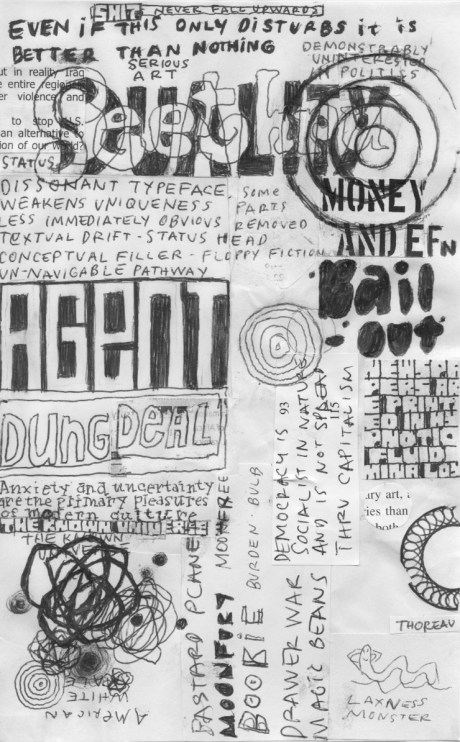 SHIT NEVER FALL UPWARDS
EVEN iF THIS ONLY DISTURBS it is
BETTER THAN NOTHING
SERIOUS
ART
DEMONSTRABLY
UNINTERESTED
IN POLITICS
ut in reality Iraq
e entire
er violence and
to stop U.S.
an alternative to
ion of our world?
STATUS
DISSONANT TYPEFACE
WEAKENS UNIQUENESS
LESS IMMEDIATELY OBVIOUS
TEXTUAL DRIFT - STATUS HEAD
CONCEPTUAL FILLER - FLOPPY FICTION
UN-NAVIGABLE PATHWAY
SOME
PARTS
REMOVED
MONEY
AND EFN
Bail
out
AGENT
DUNG DEAL
Anxiety and uncertainty
are the primary pleasures
of modern culture
THE KNOWN UNIVERSE
THE KNOWN
DEMOCRACY IS 93
SOCIALIST IN NATURE
AND IS NOT SPREAD
THRU CAPITALISM
FLUID
ury art, a
ries than
both
THOREAU
BURDEN BULB
BASTARD PLANE
MOONFURY
BOOKIE
DRAWER WAR
MAGIC BEANS
AMERICAN
WHITE
LAXNESS
MONSTER